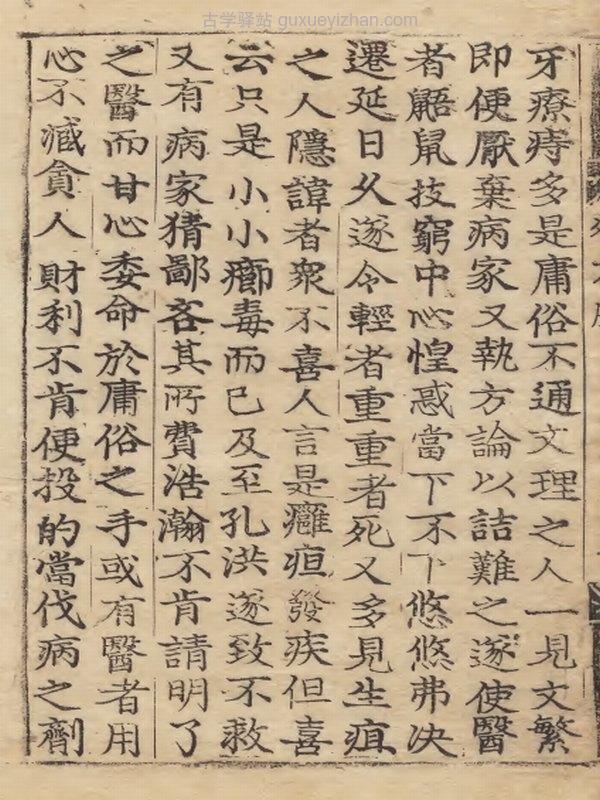 古学驿站 guxueyizhan.com
牙療痔多是庸俗不通文理之人一見文繁
即便厭棄病家又執方論以詰難之遂使醫
者鼯鼠技窮中心惶惑當下不下悠悠弗决
遷延日久遂令輕者重重者死又多見生疽
之人隱諱者衆不喜人言是癰疽發疾但喜
云只是小小癤毒而已及至孔洪遂致不救
又有病家猜鄙吝其所費浩瀚不肯請明了
之醫而甘心委命於庸俗之手或有醫者用
心不臧貪人財利不肯便投的當伐病之劑